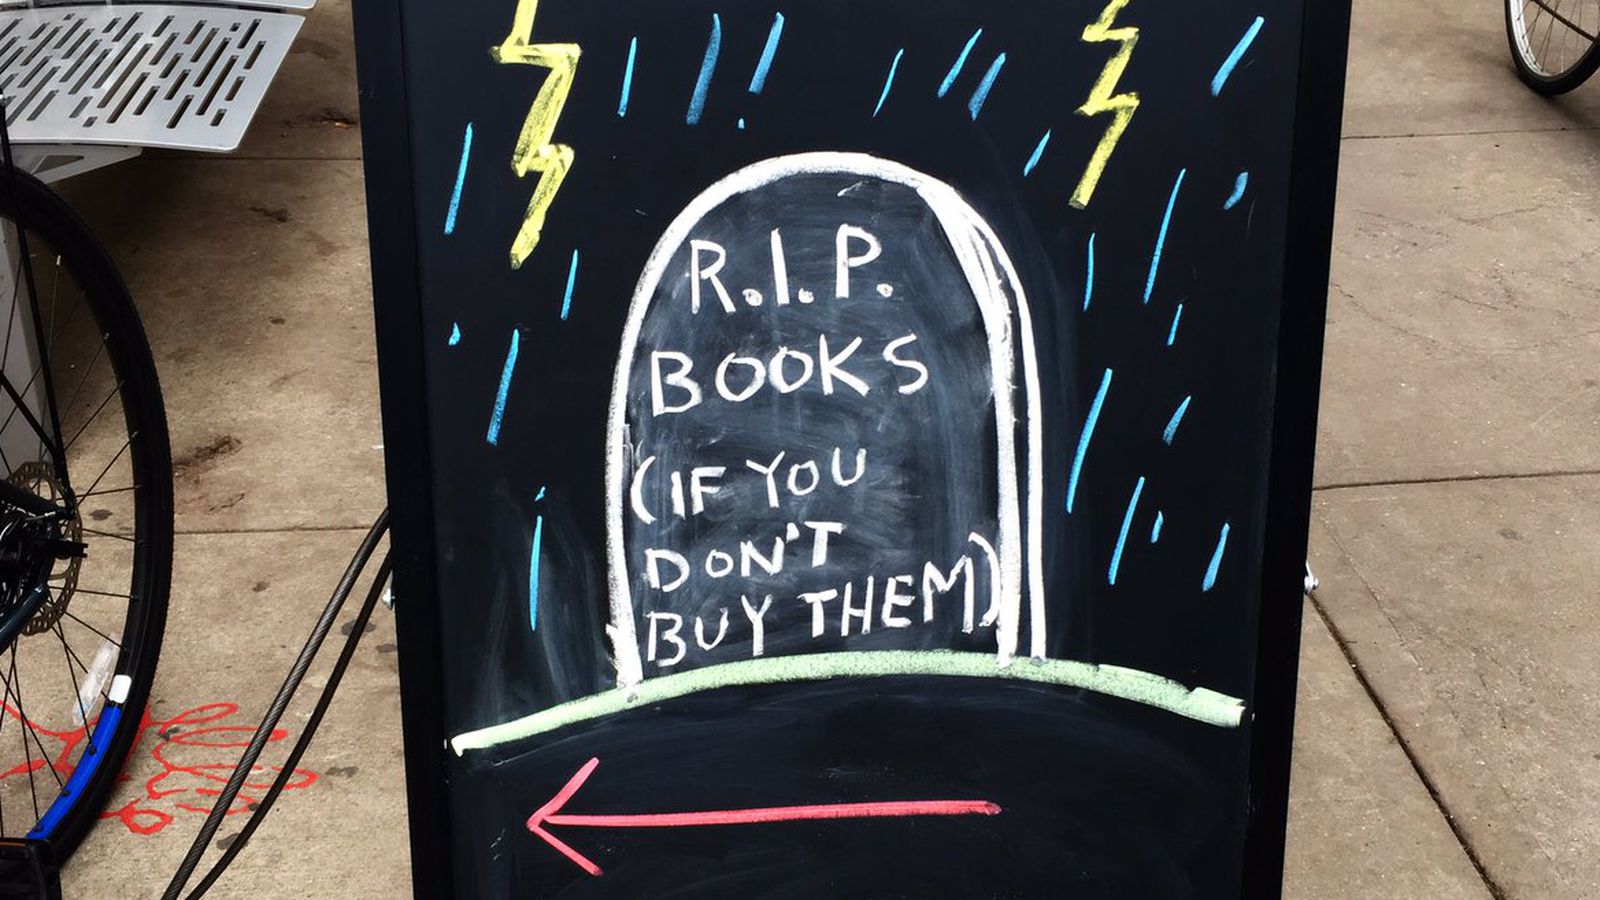 R.I.P.
BOOKS
(IF YOU
DON'T
BUY THEM)